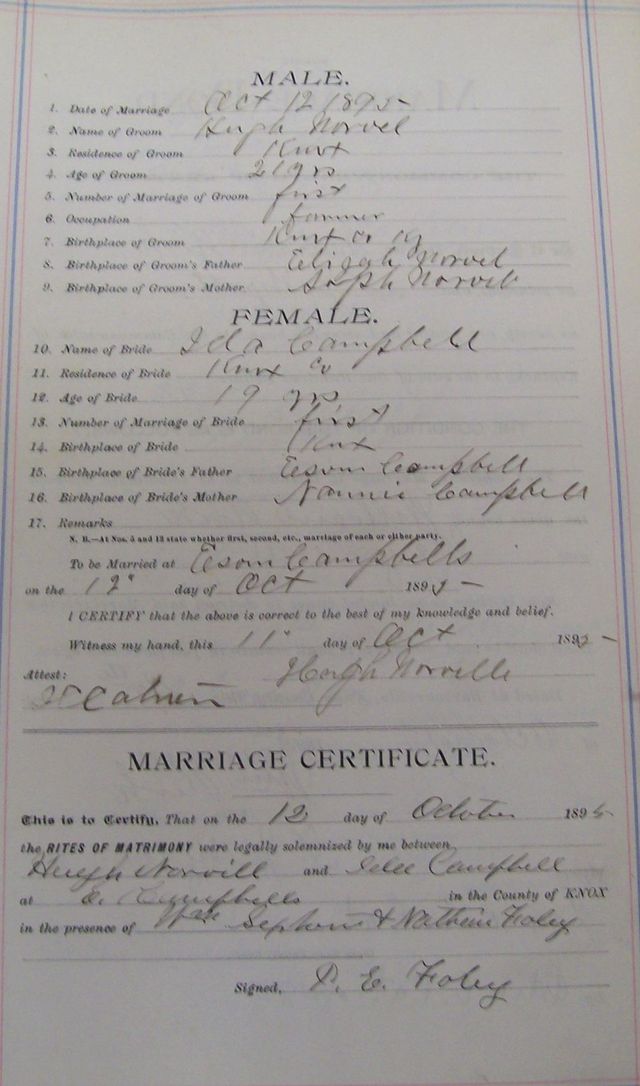 MALE.
1. Date of Marriage Oct 12 1895
2. Name of Groom Hugh Norvel
3. Residence of Groom Knox
4. Age of Groom 21 yrs
5. Number of Marriage of Groom first
6. Occupation farmer
7. Birthplace of Groom Knox co Ky
8. Birthplace of Groom's Father Elizah Norvel
9. Birthplace of Groom's Mother. Norvel
FEMALE.
10. Name of Bride Ida Campbell
11. Residence of Bride Knox Co
12. Age of Bride 19 yrs
13. Number of Marriage of Bride first
14. Birthplace of Bride Knox
15. Birthplace of Bride's Father Esom Campbell
16. Birthplace of Bride's Mother Nannie Campbell
17. Remarks
N. B.—At Nos. 5 and 13 state whether first, second, etc., marriage of each or either party.
To be Married at Esom Campbells
on the 12" day of Oct 1895
I CERTIFY that the above is correct to the best of my knowledge and belief.
Witness my hand, this 11" day of Oct 1895
Attest: Hugh Norville
MARRIAGE CERTIFICATE.
This is to Certify, That on the 12 day of October 1895
the RITES OF MATRIMONY were legally solemnized by me between
Hugh Norvill and Idee Campbell
at E. Campbells in the County of KNOX
in the presence of & Foley
Signed, P. E. Foley